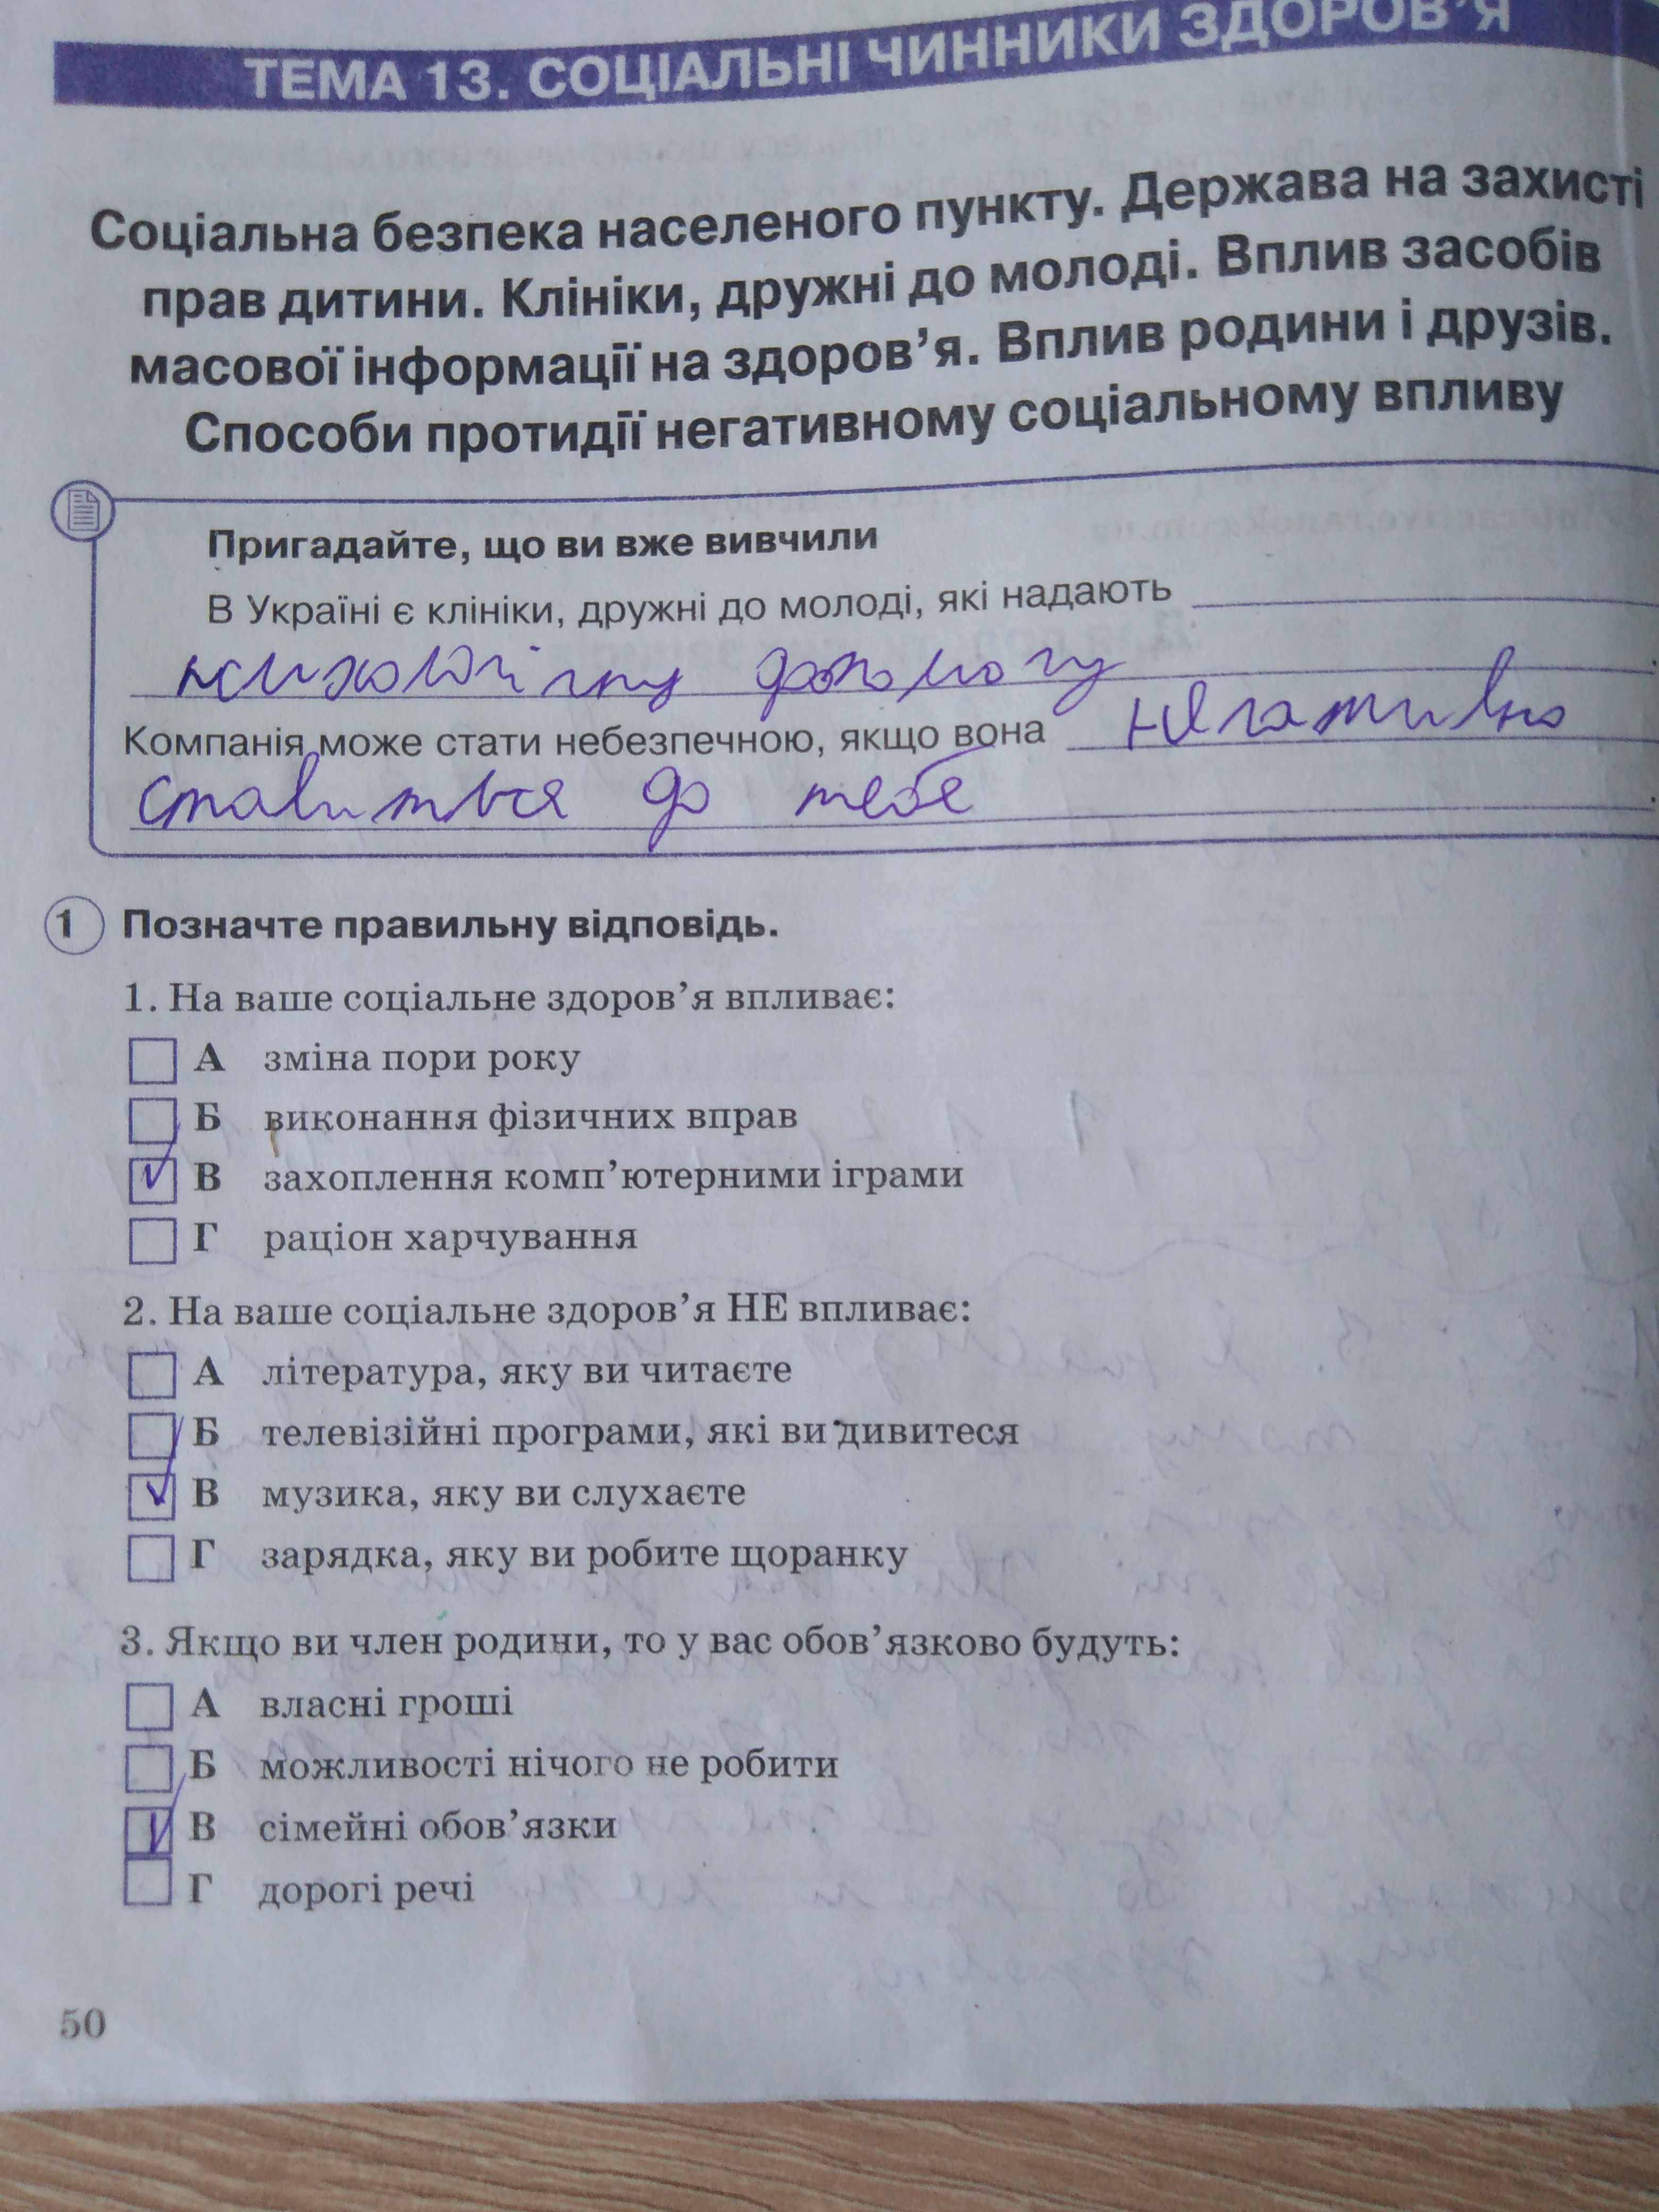 ТЕМА 13. СОЦІАЛЬНІ ЧИННИКИ ЗДОРОВ'Я
Соціальна безпека населеного пункту. Держава на захисті
прав дитини. Клініки, дружні до молоді. Вплив засобів
масової інформації на здоров'я. Вплив родини і друзів.
Способи протидії негативному соціальному впливу
Пригадайте, що ви вже вивчили
В Україні є клініки, дружні до молоді, які надають
психологічну допомогу
Компанія може стати небезпечною, якщо вона негативно
ставиться до тебе
1 Позначте правильну відповідь.
1. На ваше соціальне здоров'я впливає:
А зміна пори року
Б виконання фізичних вправ
В захоплення комп'ютерними іграми
Г раціон харчування
2. На ваше соціальне здоров'я НЕ впливає:
А література, яку ви читаєте
Б телевізійні програми, які ви дивитеся
В музика, яку ви слухаєте
Г зарядка, яку ви робите щоранку
3. Якщо ви член родини, то у вас обов'язково будуть:
А власні гроші
Б можливості нічого не робити
В сімейні обов'язки
Г дорогі речі
50